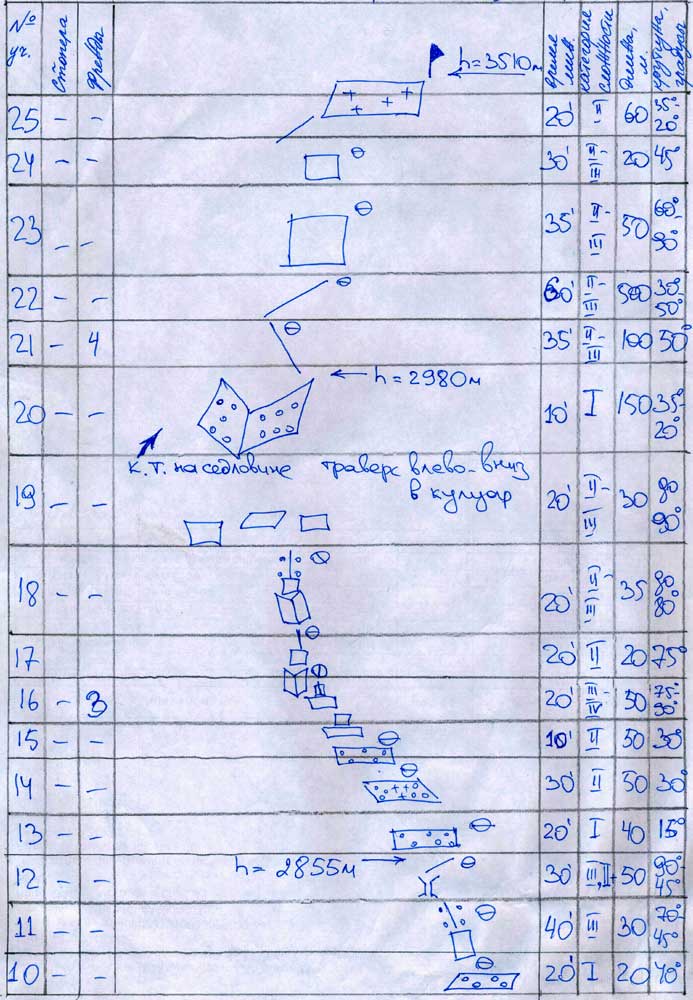 № уч. Стопера Френды время мин категория сложности длина, м. крутизна, градусы
h=3510м
25 – – 20' II 60 35°-20°
24 – – 30' II-III 20 45°
23 – – 35' II-III 50 60°-90°
22 – – 60' II-III 500 30°-50°
21 – 4 35' II-III 100 50°
h=2980м
20 – – 10' I 150 35°-20°
к.т. на седловине траверс влево-вниз
в кулуар
19 – – 20' II-III 30 80 90°
18 – – 20' II-III 35 80 80°
17 20' II 20 75°
16 – 3 20' III-IV 50 75°-90°
15 – – 10' II 50 30°
14 – – 30' II 50 30°
13 – – 20' I 40 15°
h=2855м
12 – – 30' III,II+ 50 90°-45°
11 – – 40' III 30 70°-45°
10 – – 20' I 20 40°